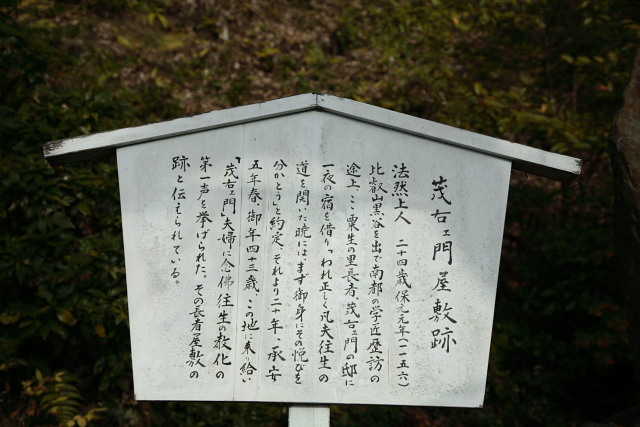 茂右ェ門屋敷跡
法然上人　二十四歳保元元年（一一五六）
比叡山黒谷を出で南都の学匠歴訪の
途上、ここ粟生の里長者、茂右ェ門の邸に
一夜の宿を借り、「われ正しく凡夫往生の
道を開いた暁には、まず御身にその悦びを
分かとう」と約定、それより二十年、承安
五年春、御年四十三歳、この地に来り給い
「茂右ェ門」夫婦に念佛往生の教化の
第一声を挙げられた。その長者屋敷の
跡と伝えられている。